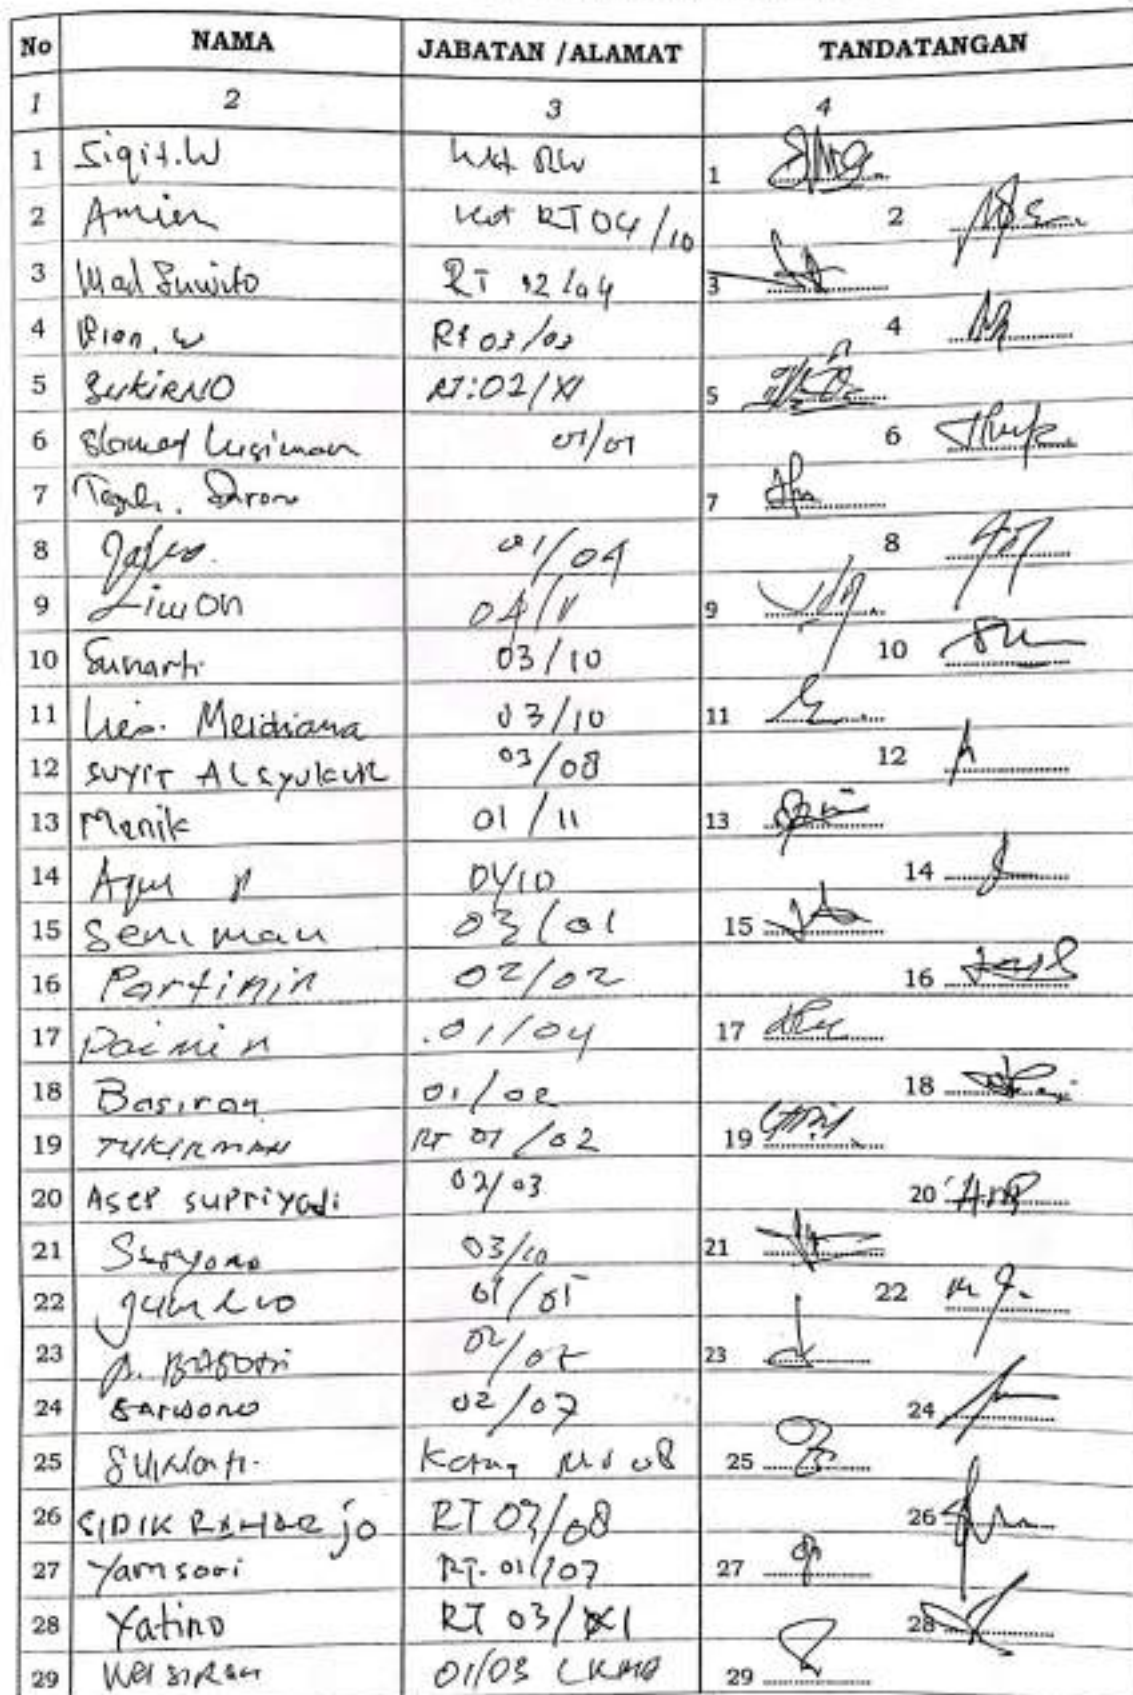 No NAMA JABATAN /ALAMAT TANDATANGAN
1 2 3 4
1 Sigit.W Ket RW 1
2 Amien Ket RT 04/10 2
3 Mad Suwito RT 02/04 3
4 W RT 03/03 4
5 SUKIRNO RT:02/XI 5
6 Slamet Lugiman 01/01 6
7 Teguh. 7
8 01/04 8
9 Limon 04/11 9
10 Sunarti 03/10 10
11 Lies. Meidiana 03/10 11
12 SUYIT ALSYUKUR 03/08 12
13 Menik 01/11 13
14 Agus P 04/10 14
15 Seniman 03/01 15
16 Partimin 02/02 16
17 Paimin .01/04 17
18 Basiran 01/02 18
19 TUKIRMAN RT 01/02 19
20 ASEP SUPRIYADI 02/03 20
21 Suryono 03/10 21
22 01/01 22
23 A. 02/07 23
24 SARWONO 02/07 24
25 SUWARTI. 08 25
26 SIDIK RAHARJO RT 03/08 26
27 Yamsori RT. 01/07 27
28 Yatino RT 03/XI 28
29 01/03 LKMD 29